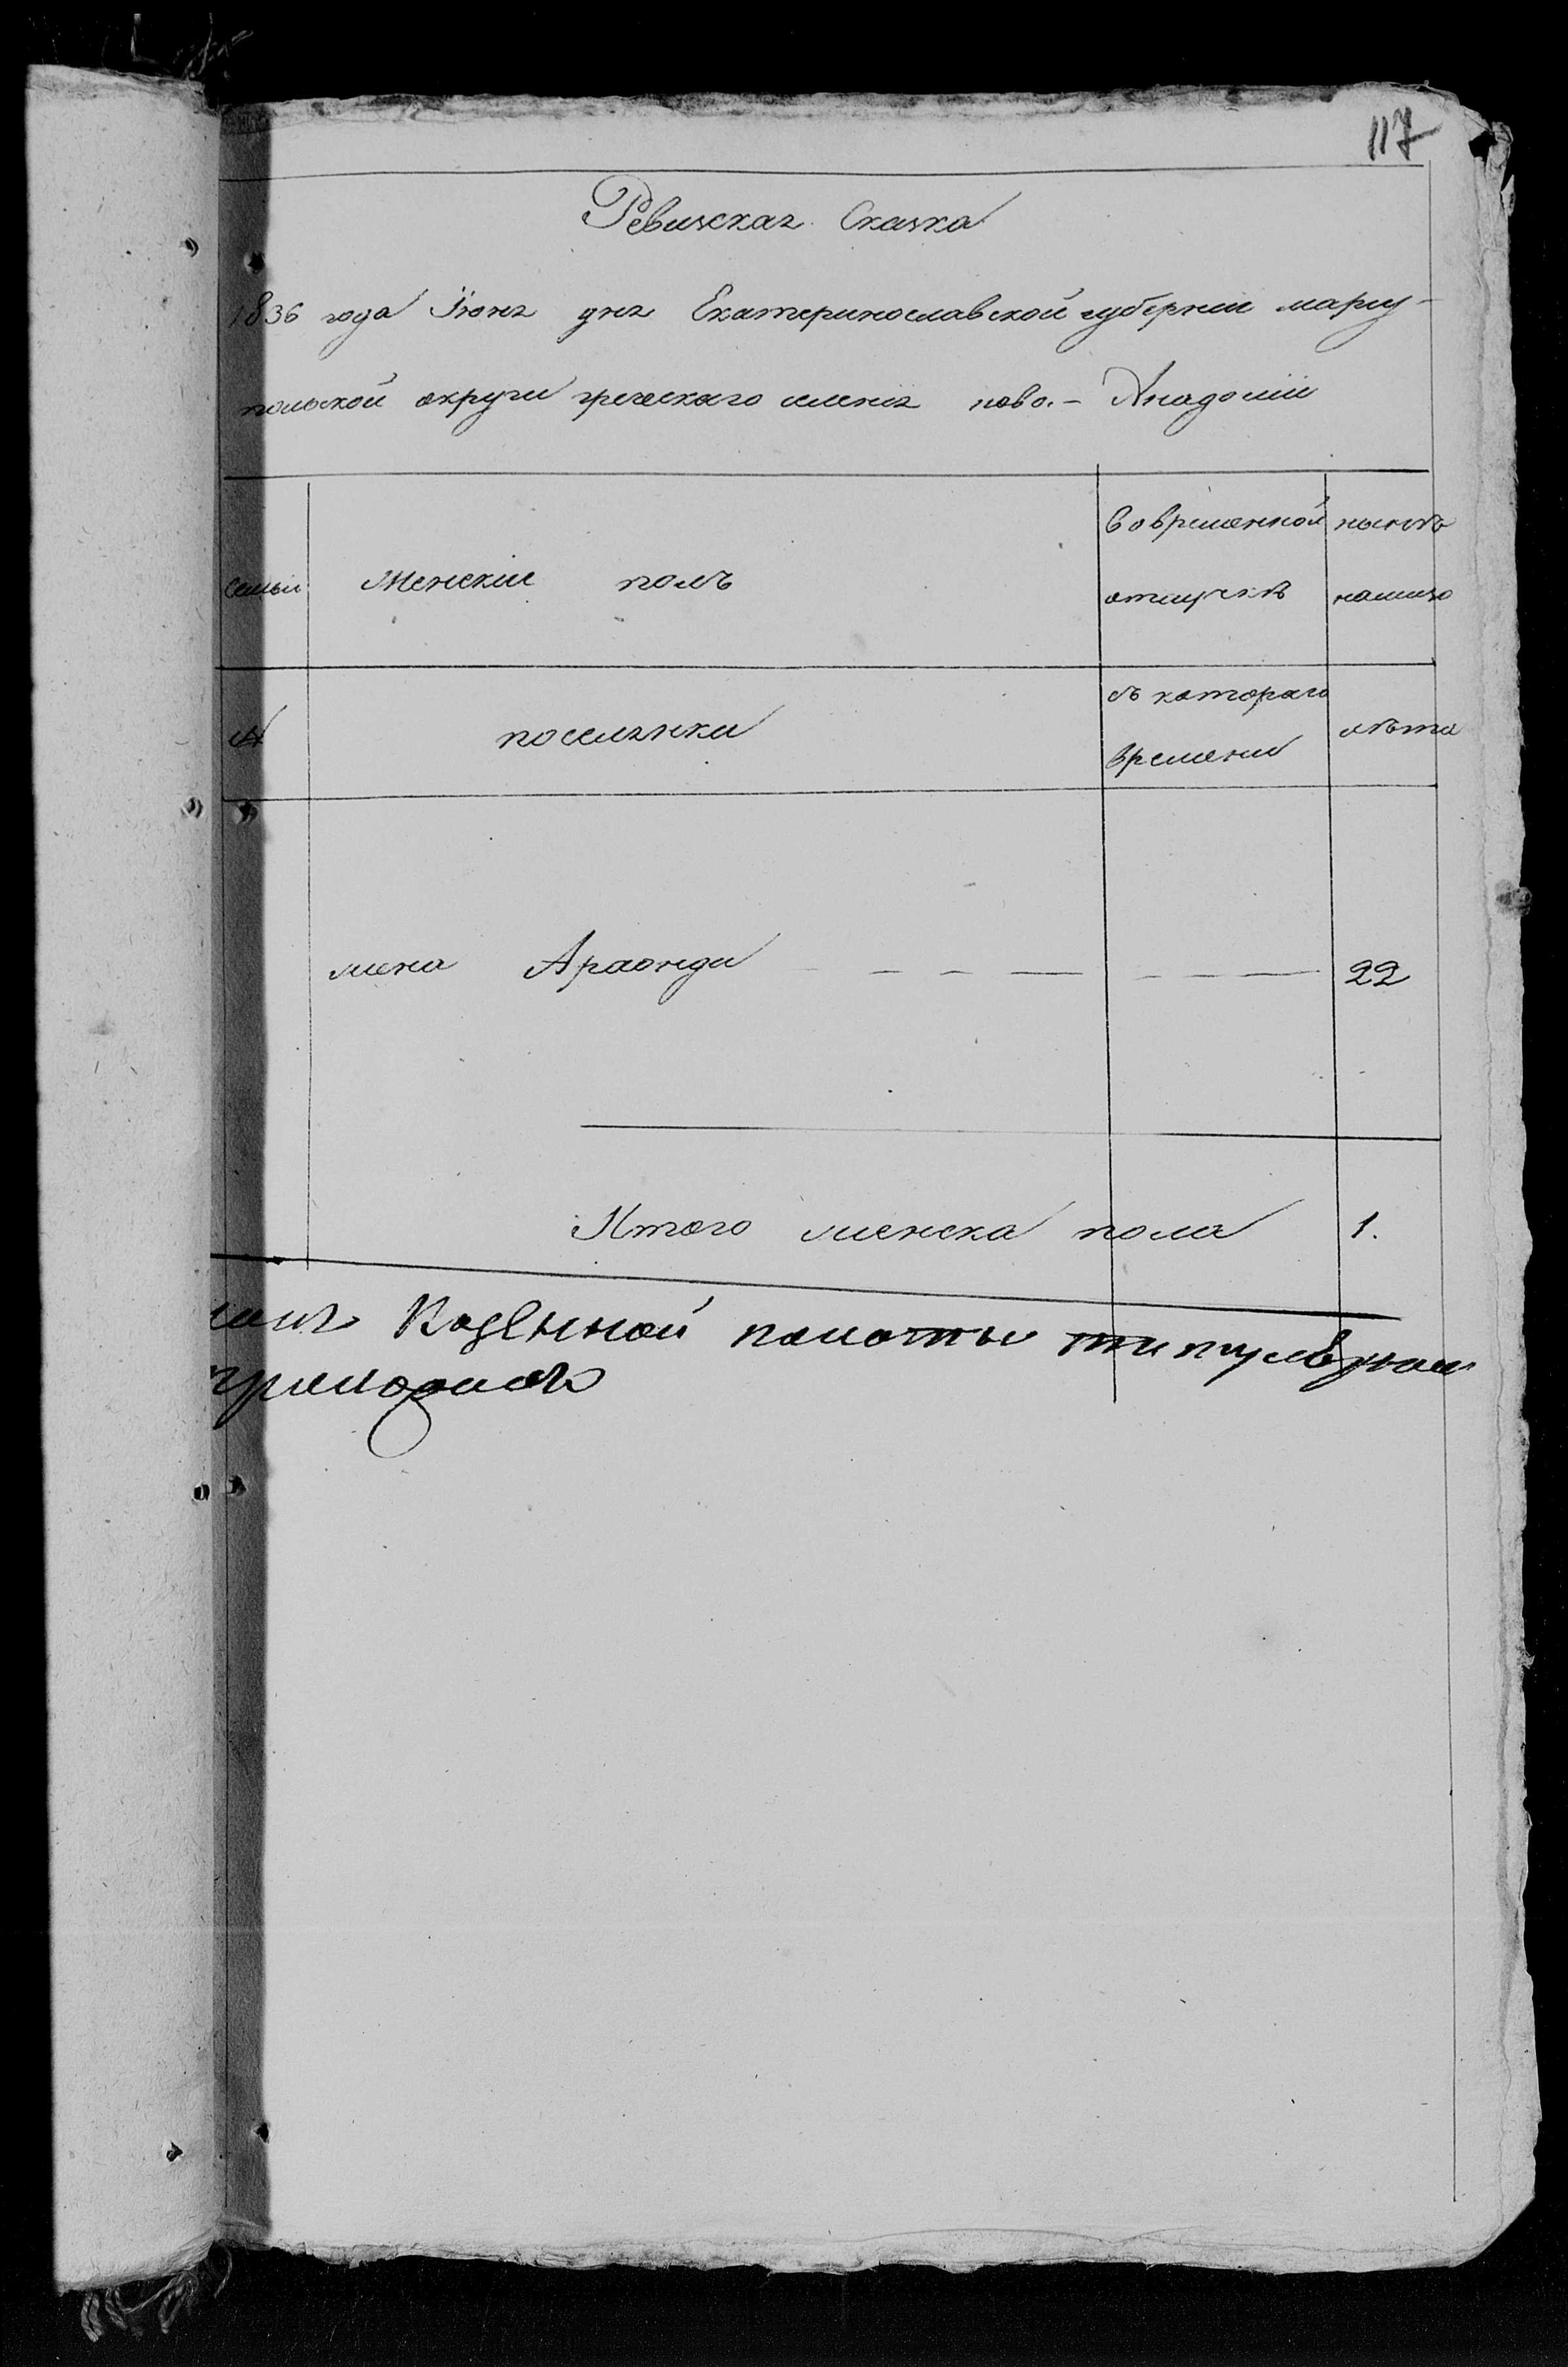 117
Ревизская Сказка
1836 года Іюня дня Екатеринославской губерніи мариу-
польской округи греческаго селенія ново.- Анадоліи
семьи
Женскіи полъ
вовременной
отлучкѣ
нынѣ
налицо
№
поселянки
съ котораго
времени
лѣта
жена Араонди
22
Итого женска пола 1.
Казенной палаты титулярной